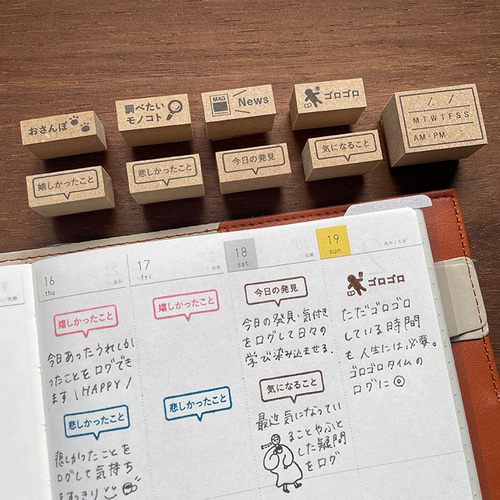 おさんぽ
調べたい
モノコト
MAG
News
ゴロゴロ
/ /
M T W T F S S
AM・PM
嬉しかったこと
悲しかったこと
今日の発見
気になること
16
thu
17
fri
18
sat
19
sun
嬉しかったこと
今日あったうれしか
ったことをログでき
ます \HAPPY/
悲しかったこと
悲しかったことを
ログして気持ち
をすっきり
嬉しかったこと
悲しかったこと
今日の発見
今日の発見・気付き
をログして日々の
学び染み込ませる。
気になること
最近気になってい
ることやふと
した疑問
をログ
ゴロゴロ
ただゴロゴロ
している時間
も人生には必要。
ゴロゴロタイムの
ログに